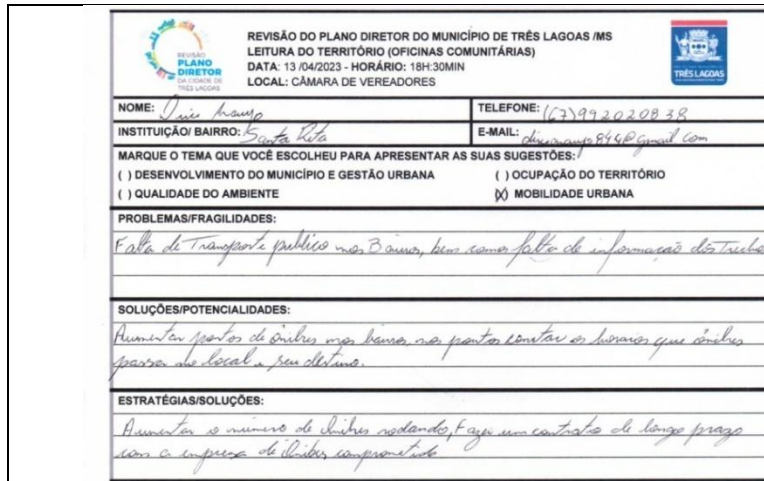 REVISÃO
PLANO
DIRETOR
DA CIDADE DE
TRÊS LAGOAS
REVISÃO DO PLANO DIRETOR DO MUNICÍPIO DE TRÊS LAGOAS /MS
LEITURA DO TERRITÓRIO (OFICINAS COMUNITÁRIAS)
DATA: 13 /04/2023 - HORÁRIO: 18H:30MIN
LOCAL: CÂMARA DE VEREADORES
TRÊS LAGOAS
NOME: Araujo
TELEFONE: (67)992020838
INSTITUIÇÃO/ BAIRRO: Santa Rita
E-MAIL: @gmail com
MARQUE O TEMA QUE VOCÊ ESCOLHEU PARA APRESENTAR AS SUAS SUGESTÕES:
( ) DESENVOLVIMENTO DO MUNICÍPIO E GESTÃO URBANA
( ) OCUPAÇÃO DO TERRITÓRIO
( ) QUALIDADE DO AMBIENTE
(X) MOBILIDADE URBANA
PROBLEMAS/FRAGILIDADES:
Falta de Transporte publico nos Bairros, bem como falta de informação dos
SOLUÇÕES/POTENCIALIDADES:
Aumentar pontos de ônibus nos bairros, nos pontos constar os horarios que ônibus
passa no local e seu destino.
ESTRATÉGIAS/SOLUÇÕES:
Aumentar o número de ônibus rodando, Fazer um contrato de longo prazo
com a empresa de ônibus comprometida